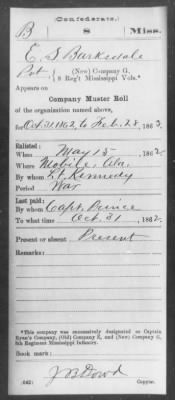 (Confederate.)
B 8 Miss.
E. S. Barksdale
Pvt (New) Company G,
8 Reg't Mississippi Vols.*
Appears on
Company Muster Roll
of the organization named above,
for Oct 31, 1862, to Feb. 28, 1863.
Enlisted:
When May 15, 1862.
Where Mobile, Ala.
By whom Lt. Kennedy
Period War
Last paid:
By whom Capt. Prince
To what time Oct. 31, 1862.
Present or absent Present
Remarks:
*This company was successively designated as Captain
Ryan's Company, (Old) Company E, and (New) Company G,
8th Regiment Mississippi Infantry.
Book mark:
J B Dowd
(642) Copyist.